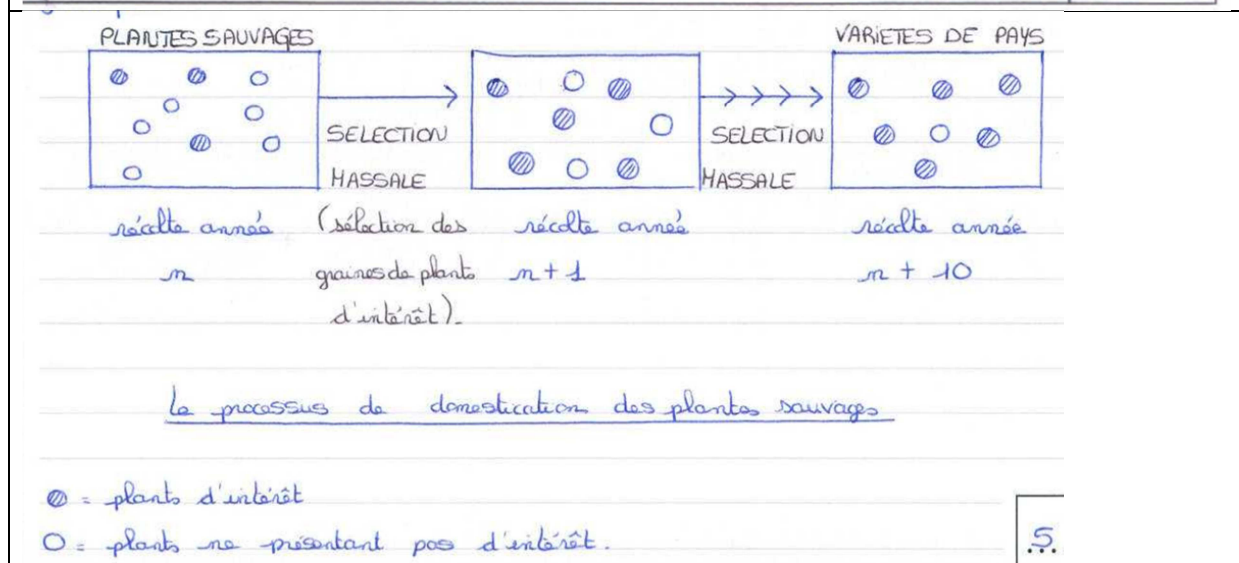 PLANTES SAUVAGES
VARIETES DE PAYS
SELECTION
MASSALE
SELECTION
MASSALE
récolte année
n
(sélection des
graines de plants
d'intérêt).
récolte année
n + 1
récolte année
n + 10
Le processus de domestication des plantes sauvages
= plants d'intérêt
= plants ne présentant pas d'intérêt.
5